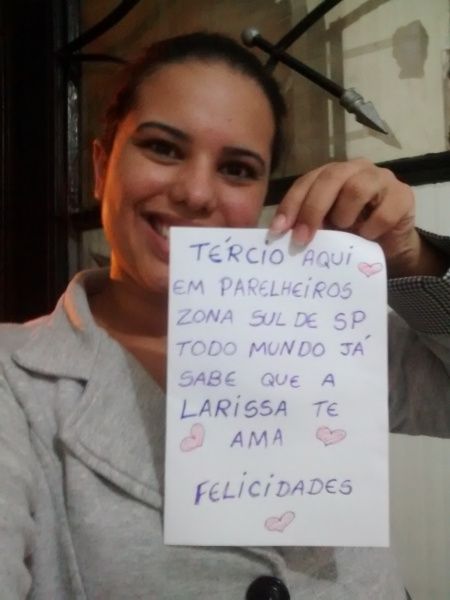 TÉRCIO AQUI
EM PARELHEIROS
ZONA SUL DE SP
TODO MUNDO JÁ
SABE QUE A
LARISSA TE
AMA
FELICIDADES